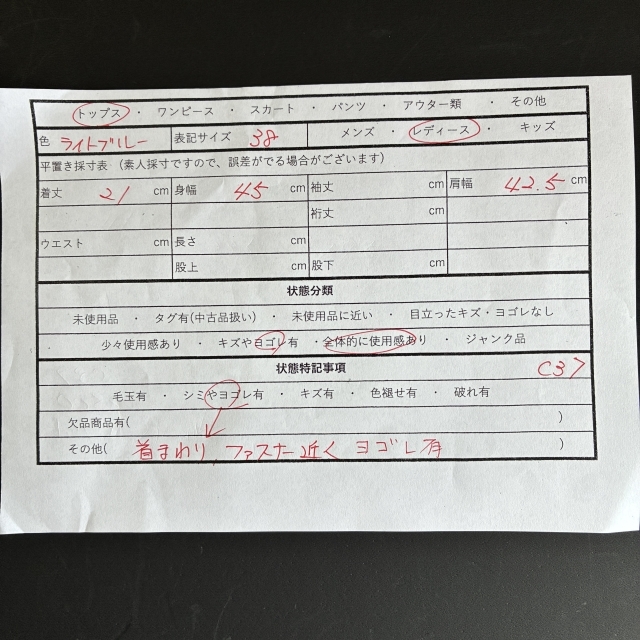 トップス ・ ワンピース ・ スカート ・ パンツ ・ アウター類 ・ その他
色 ライトブルー 表記サイズ 38 メンズ ・ レディース ・ キッズ
平置き採寸表 (素人採寸ですので、誤差がでる場合がございます)
着丈 21 cm 身幅 45 cm 袖丈 cm 肩幅 42.5 cm
裄丈 cm
ウエスト cm 長さ cm
股上 cm 股下 cm
状態分類
未使用品 ・ タグ有(中古品扱い) ・ 未使用品に近い ・ 目立ったキズ・ヨゴレなし
少々使用感あり ・ キズやヨゴレ有 ・ 全体的に使用感あり ・ ジャンク品
状態特記事項 C37
毛玉有 ・ シミやヨゴレ有 ・ キズ有 ・ 色褪せ有 ・ 破れ有
欠品商品有( )
その他( 首まわり ファスナー近く ヨゴレ有 )